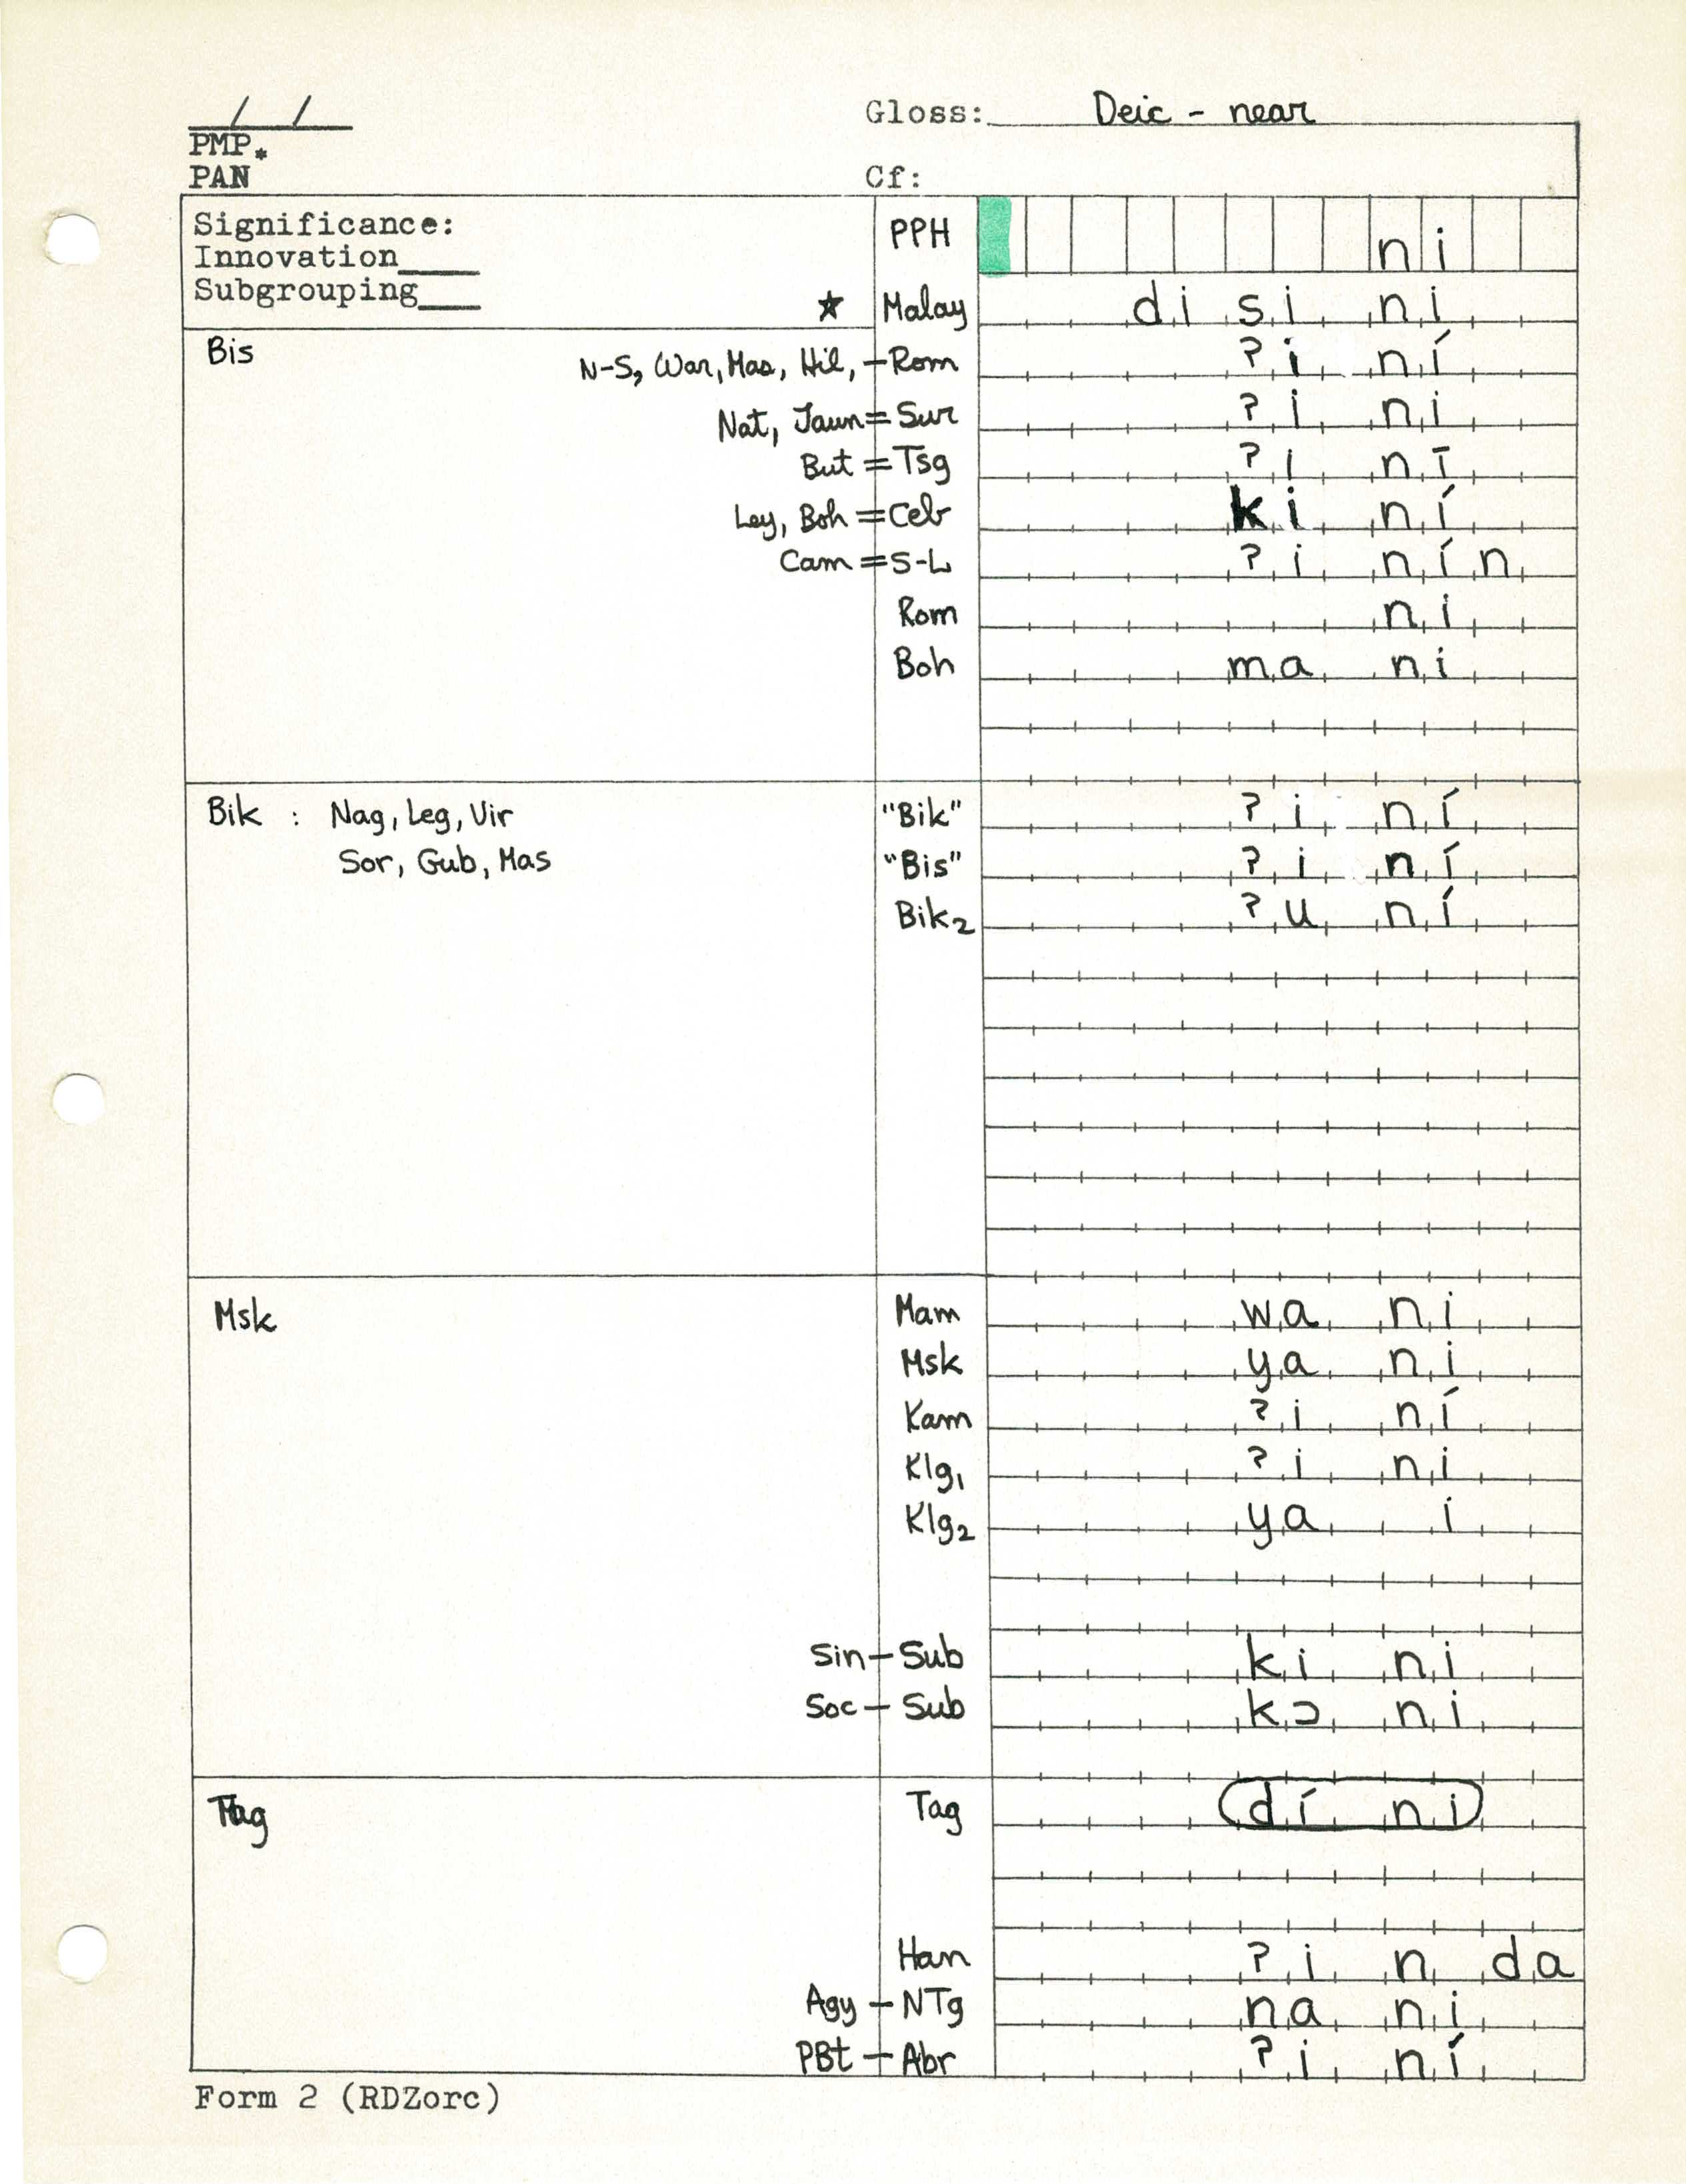 / / Gloss: Deic - near
PMP *
PAN Cf:
Significance: PPH ni
Innovation
Subgrouping ★ Malay di si ni
Bis N-S, War, Mas, Hil, - Rom ?i ní
Nat, Jaun = Sur ?i ni
But = Tsg ?i nī
Ley, Boh = Ceb ki ní
Cam = S-L ?i nín
Rom ni
Boh ma ni
Bik : Nag, Leg, Vir "Bik" ?i ní
Sor, Gub, Mas "Bis" ?i ní
Bik₂ ?u ní
Msk Mam wa ni
Msk ya ni
Kam ?i ní
Klg₁ ?i ni
Klg₂ ya i
Sin - Sub ki ni
Soc - Sub kɔ ni
Tag Tag dí ni
Han ?i n da
Agy - NTg na ni
PBt - Abr ?i ní
Form 2 (RDZorc)